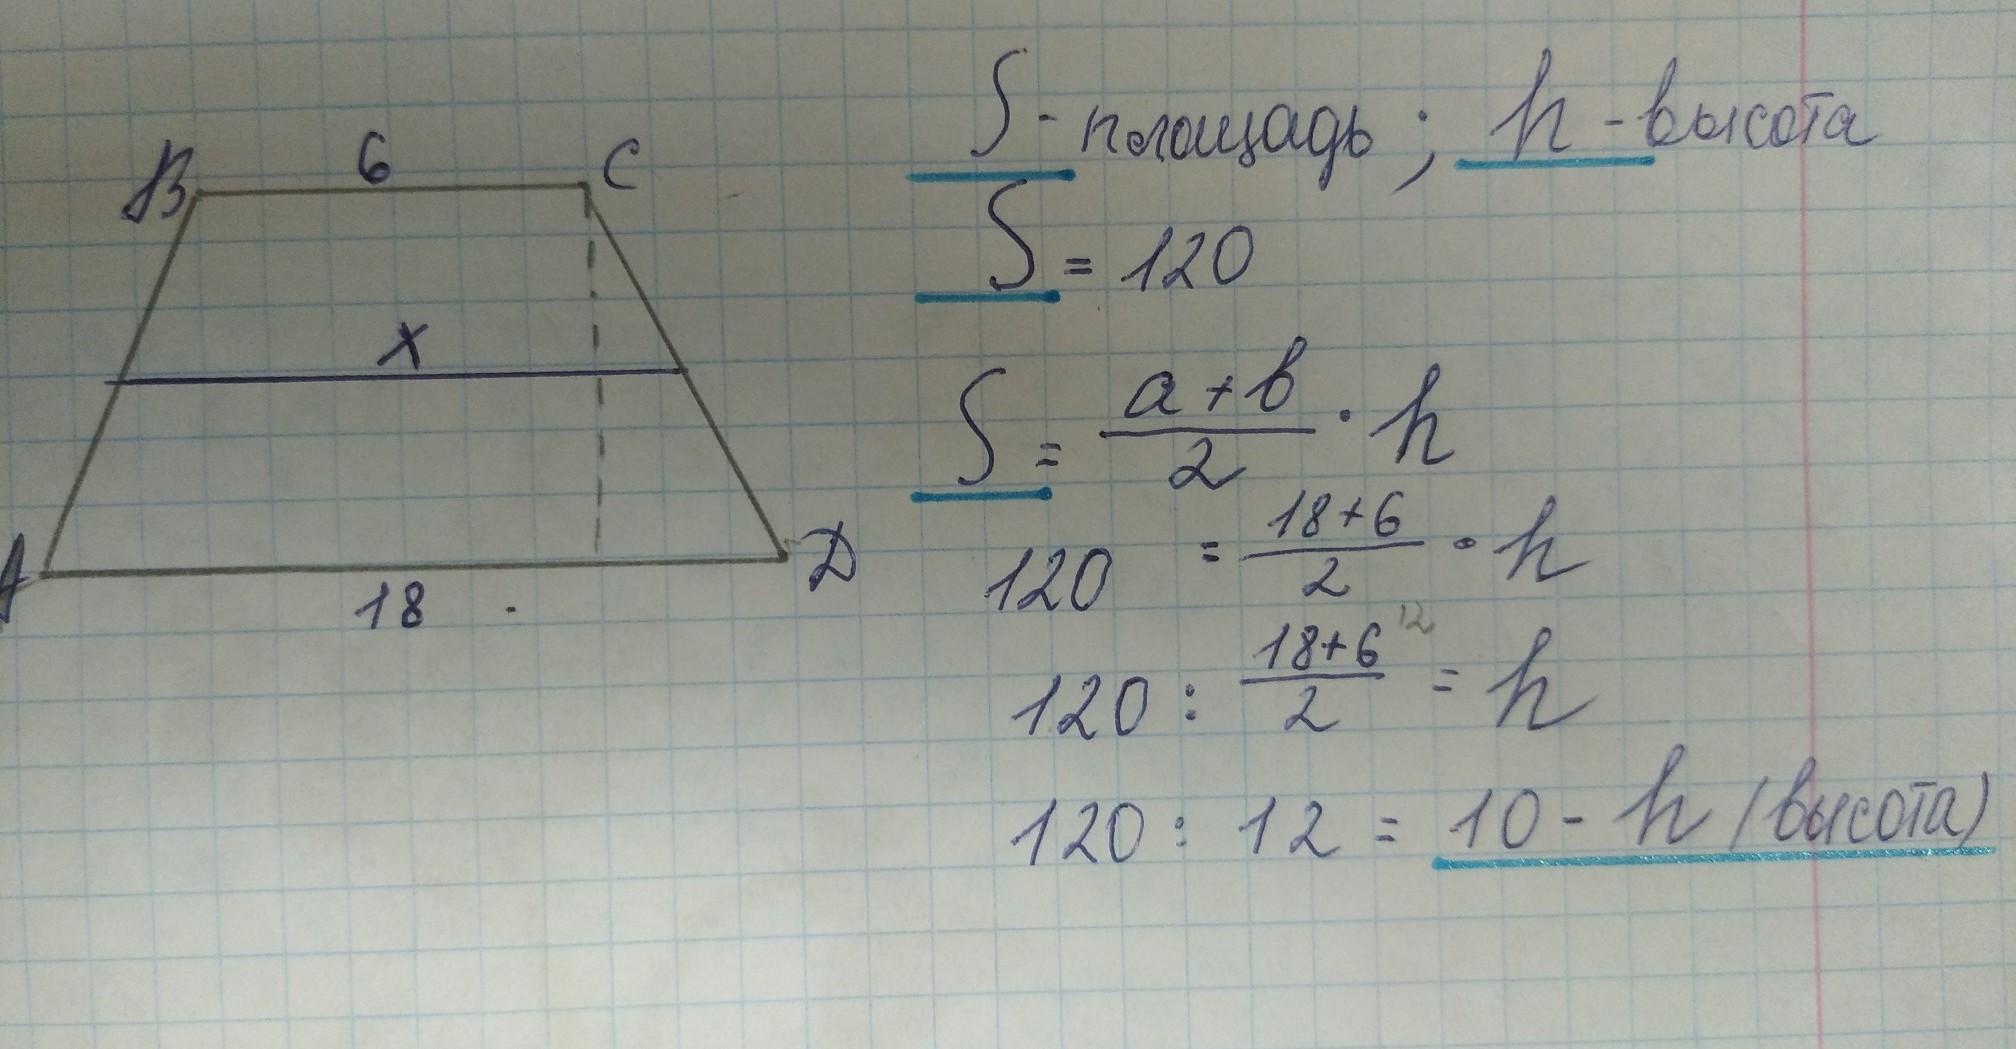 B 6 C
x
A D
18
S - площадь; h - высота
S = 120
S = \frac{a+b}{2} · h
120 = \frac{18+6}{2} · h
120 : \frac{18+6}{2} 12 = h
120 : 12 = 10 - h (высота)